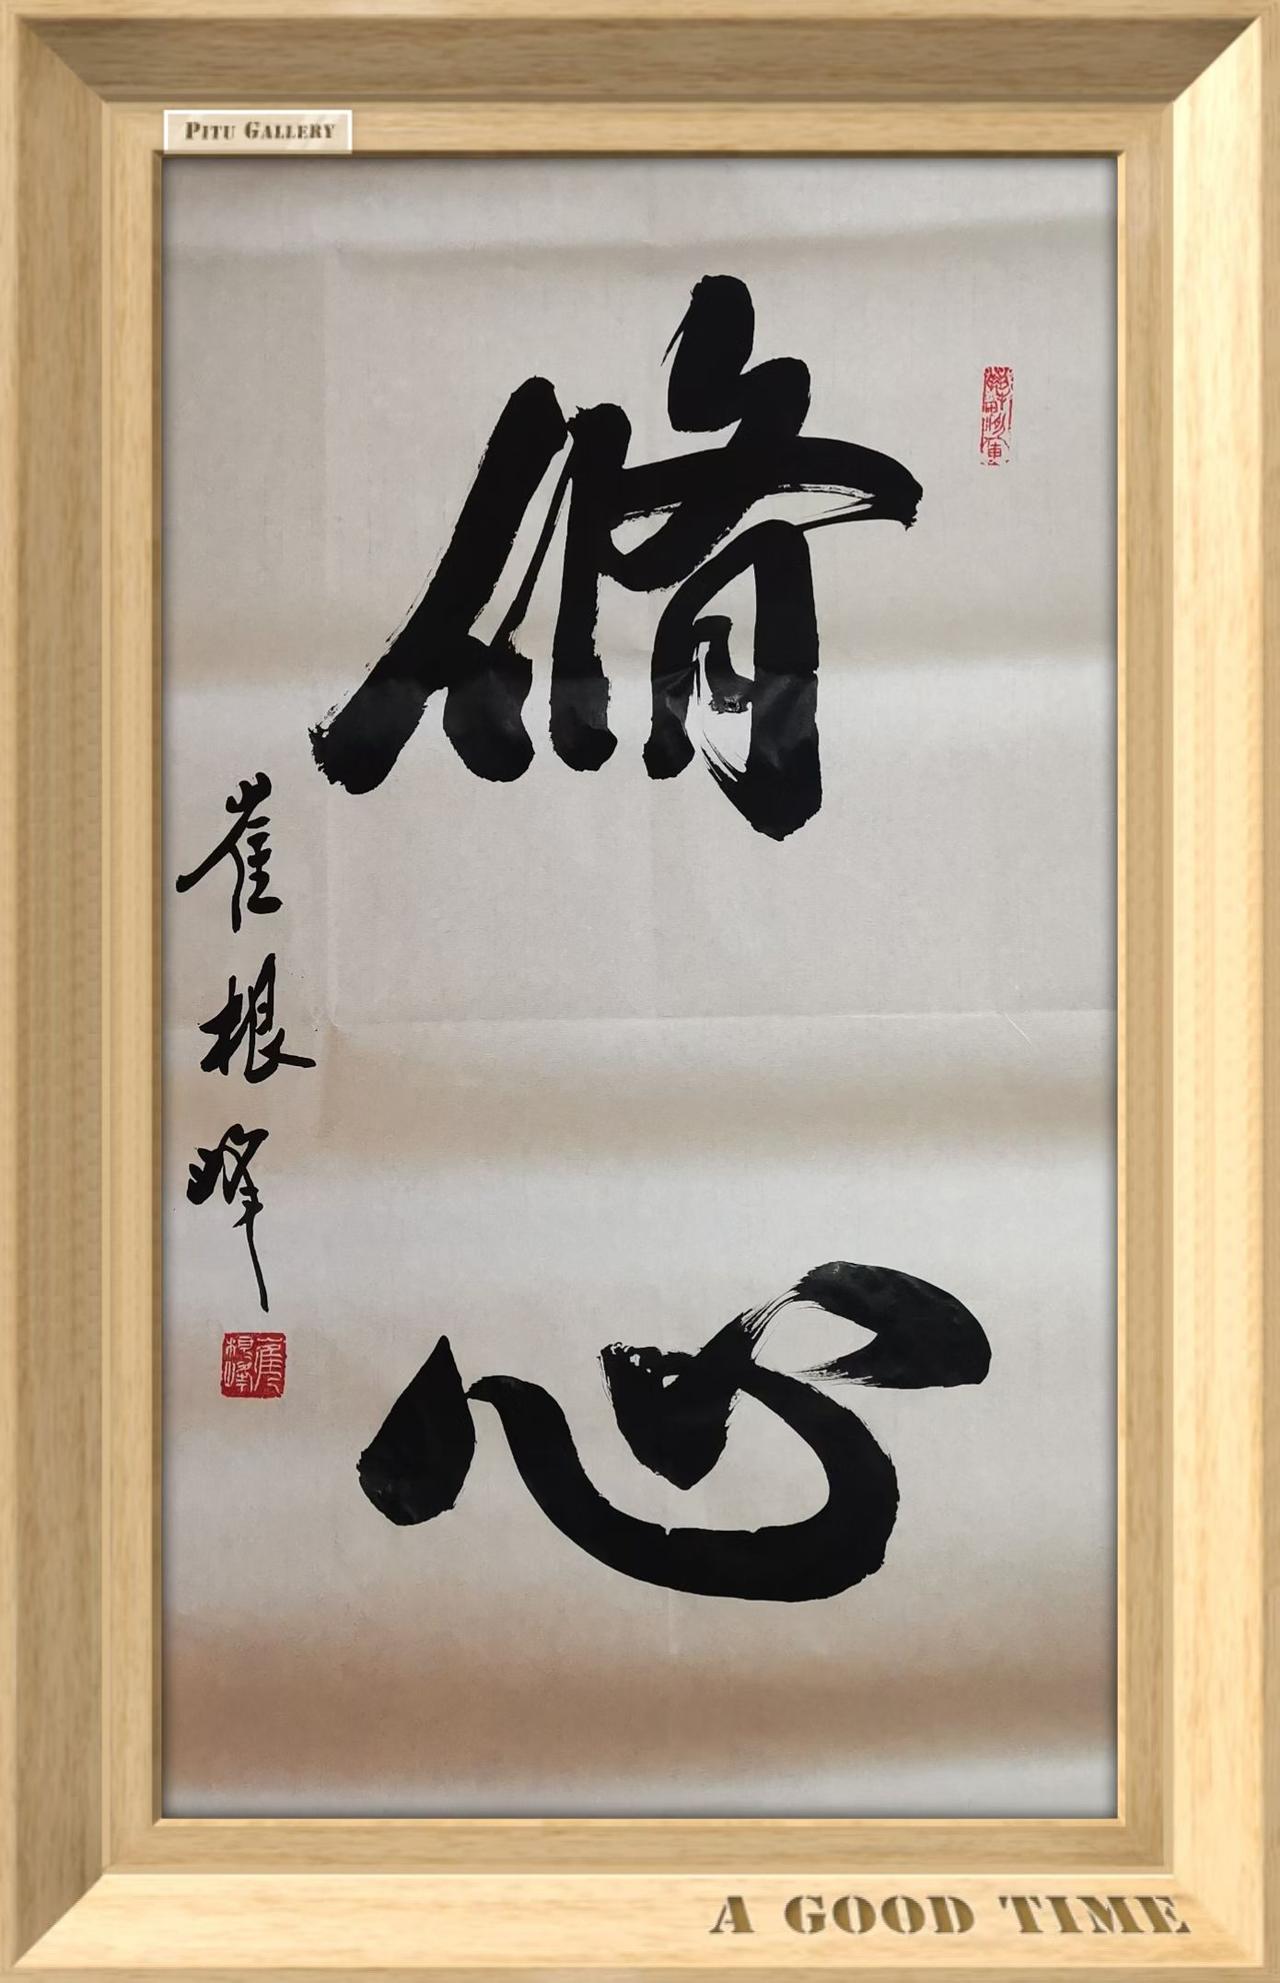 PITU GALLERY
脩心
崔根峰
崔根峰
A GOOD TIME